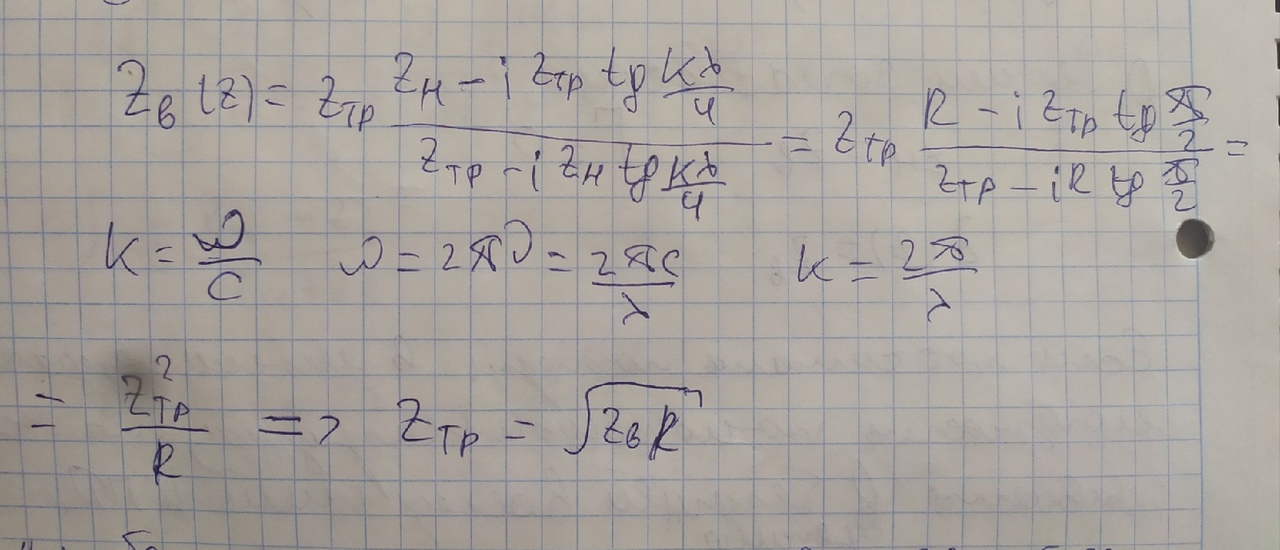 Z_в (z) = Z_тр (Z_н - i Z_тр tg (kλ/4)) / (Z_тр - i Z_н tg (kλ/4)) = Z_тр (R - i Z_тр tg (π/2)) / (Z_тр - i R tg (π/2)) =
k = ω/c ω = 2πν = 2πc/λ k = 2π/λ
= Z_тр² / R => Z_тр = √(Z_в R)